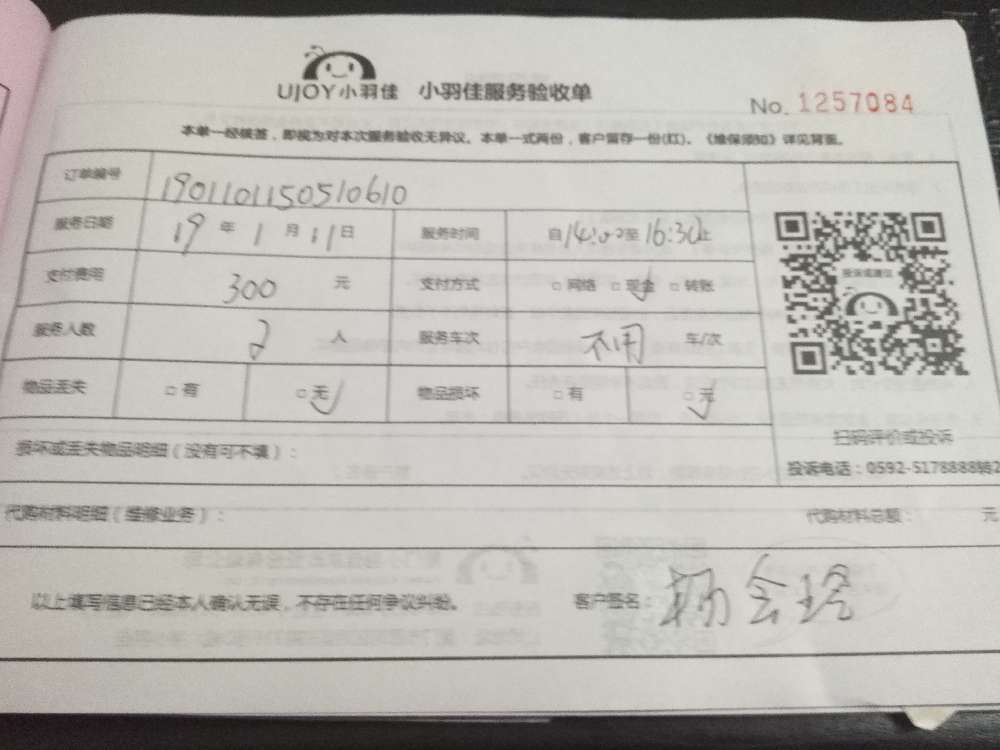 UJOY小羽佳 小羽佳服务验收单
No. 1257084
本单一经核签，即视为对本次服务验收无异议。本单一式两份，客户留存一份(红)。《维保须知》详见背面。
订单编号 1901101150510610
服务日期 19年1月11日 服务时间 自14:00至16:30止
支付费用 300 元 支付方式 □网络 □现金 □转账
服务人数 2 人 服务车次 不用 车/次
物品丢失 □有 □无 物品损坏 □有 □无
投诉或建议
扫码评价或投诉
投诉电话：0592-5178888转2
损坏或丢失物品明细（没有可不填）：
代购材料明细（维修业务）： 代购材料总额： 元
以上填写信息已经本人确认无误，不存在任何争议纠纷。 客户签名：